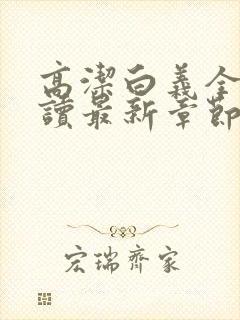 高潔白義全
讀最新章節
宏瑞齊家